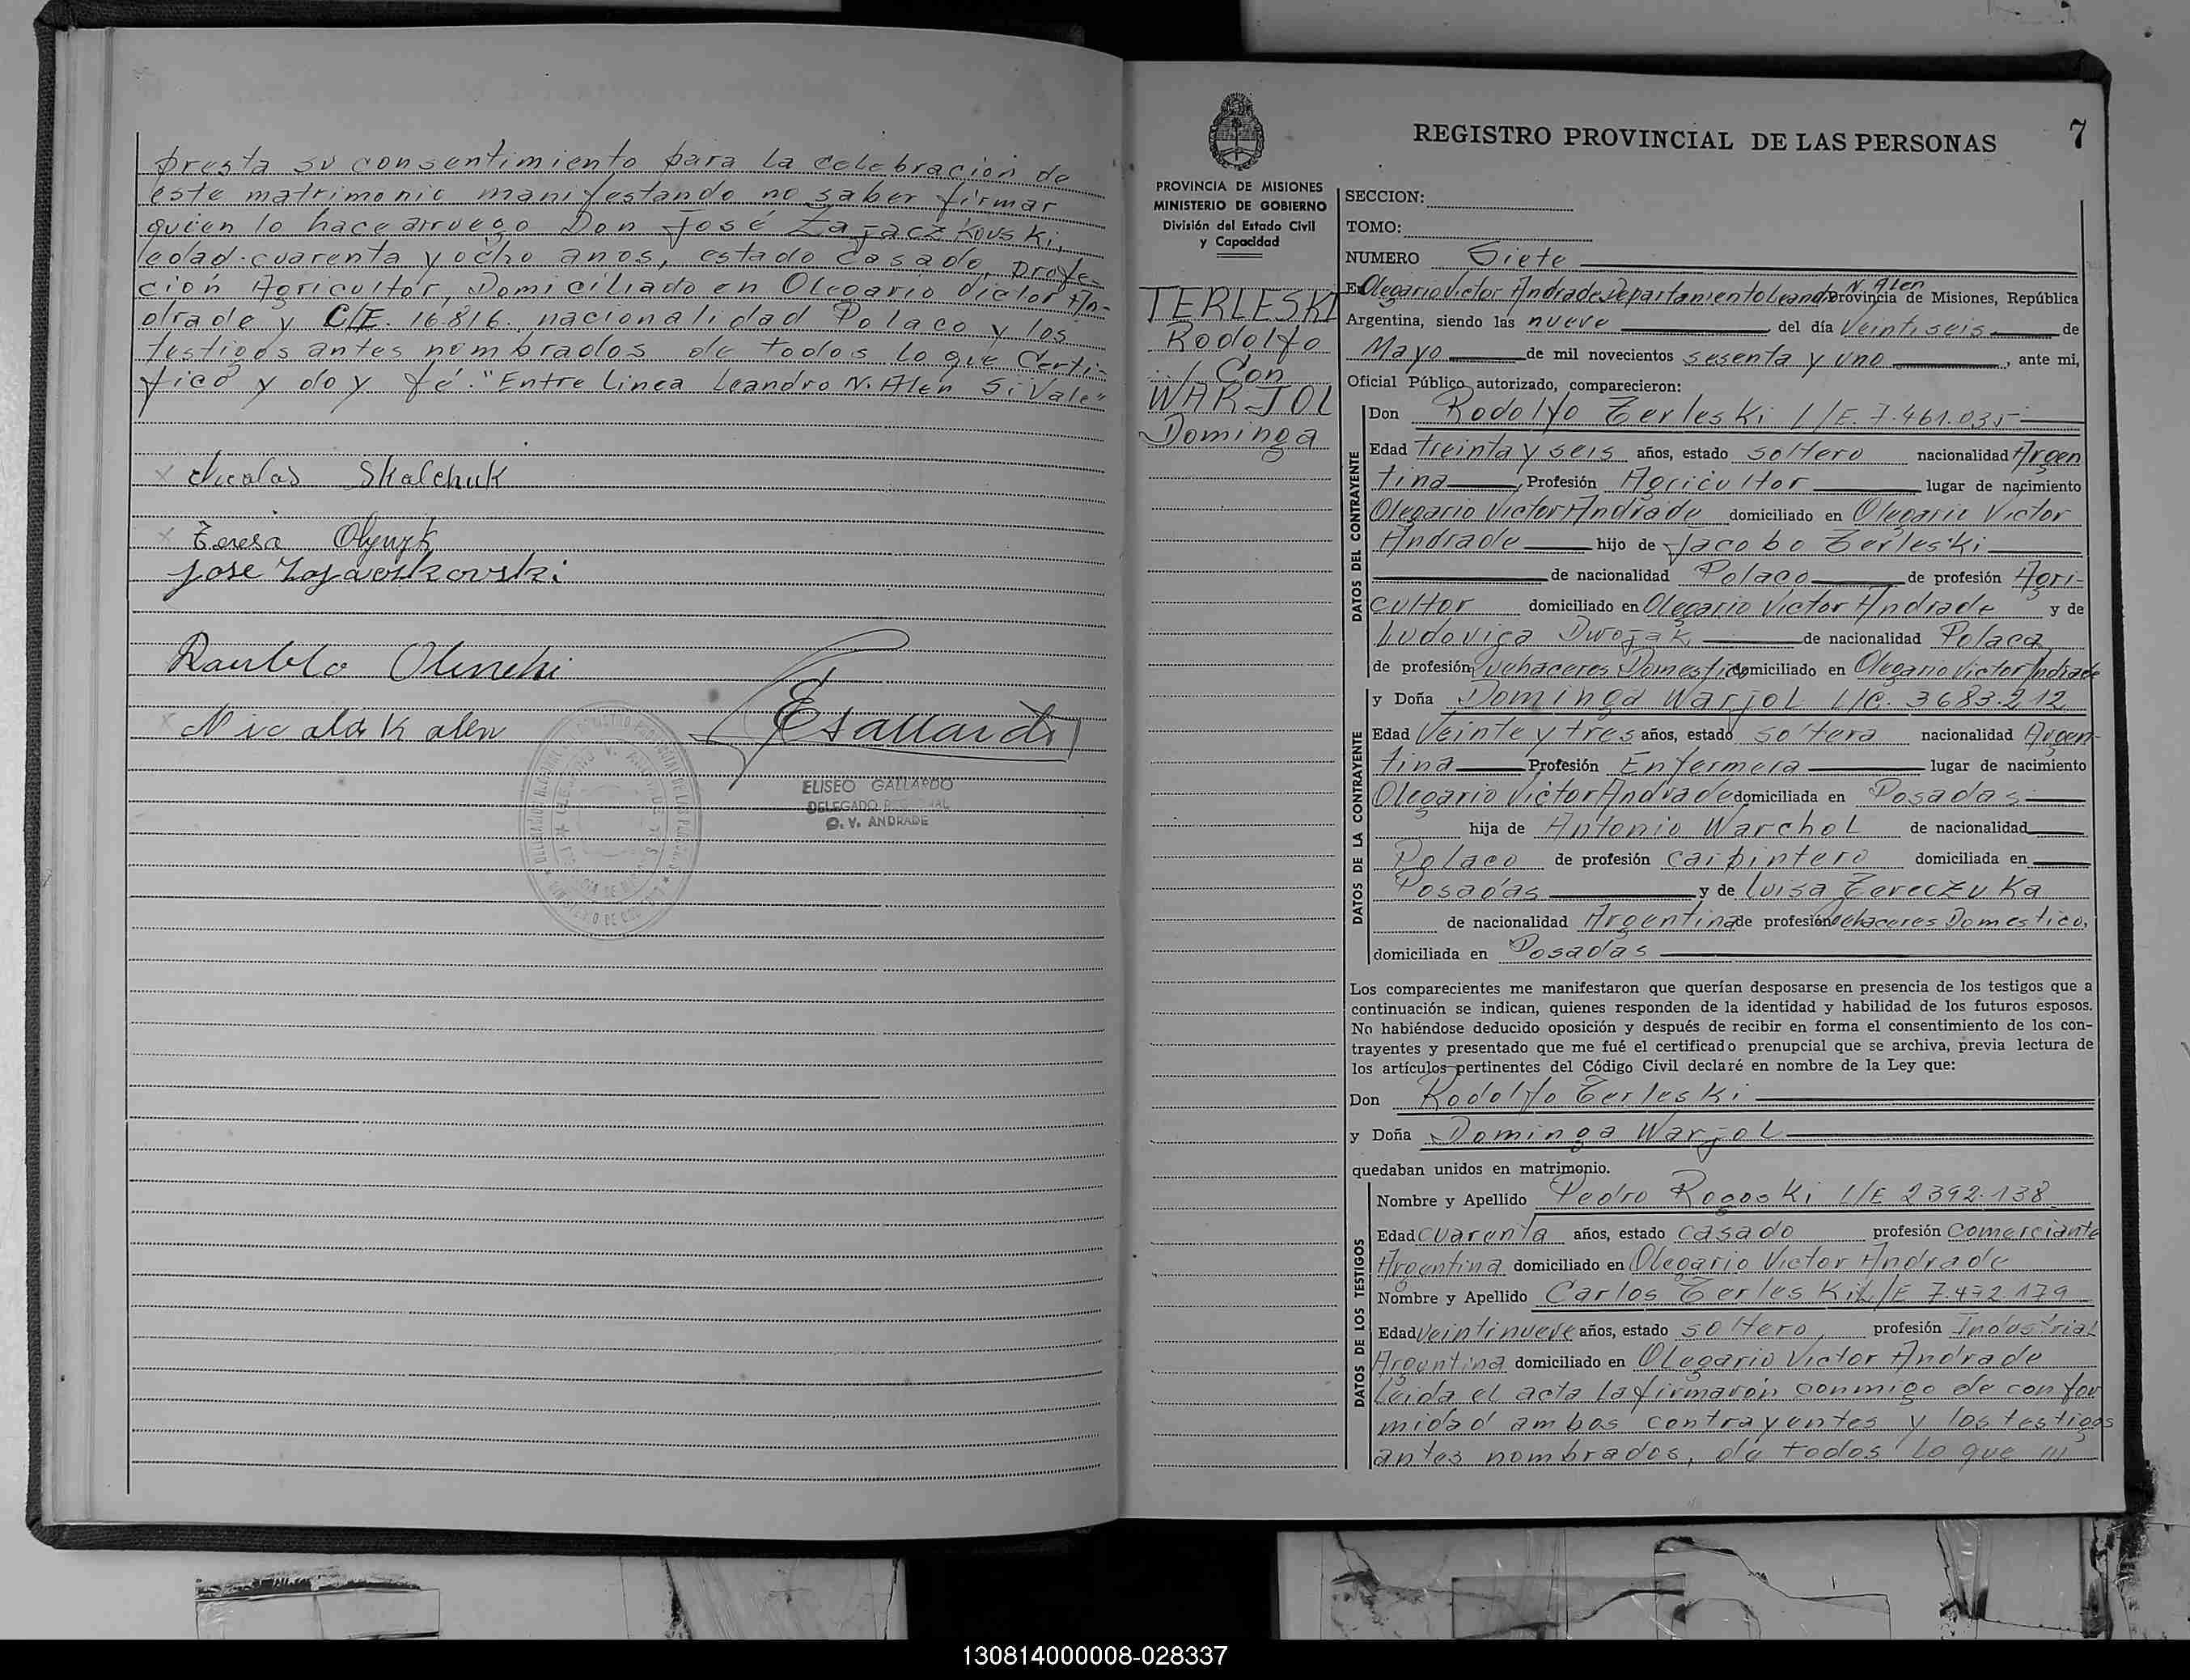 presta su consentimiento para la celebración de
este matrimonio manifestando no saber firmar
quien lo hace arruego Don José Zajaczkouski,
edad cuarenta y ocho anos, estado casado, profe-
ción Agricultor, Domiciliado en Olegario Victor An-
drade y C/E. 16.816. nacionalidad Polaco y los
testigos antes nombrados de todos lo que Certi-
fico y doy fé. "Entre linea Leandro N. Alén Si Vale"
Nicolas Skalchuk
Teresa Olynyk
José Zajaczkowski
Olinski
Nicolas Kalen
ELISEO GALLARDO
DELEGADO
O. V. ANDRADE
7
REGISTRO PROVINCIAL DE LAS PERSONAS
PROVINCIA DE MISIONES
MINISTERIO DE GOBIERNO
División del Estado Civil
y Capacidad
TERLESKI
Rodolfo
Con
WARJOL
Dominga
SECCION:
TOMO:
NUMERO Siete
En Olegario Victor Andrade Departamento Leandro N. Alen Provincia de Misiones, República
Argentina, siendo las nueve del día Veintiseis de
Mayo de mil novecientos sesenta y uno, ante mi,
Oficial Público autorizado, comparecieron:
DATOS DEL CONTRAYENTE
Don Rodolfo Terleski L/E. 7.461.035
Edad treinta y seis años, estado soltero nacionalidad Argen
tina, Profesión Agricultor lugar de nacimiento
Olegario Victor Andrade domiciliado en Olegario Victor
Andrade hijo de Jacobo Terleski
de nacionalidad Polaco de profesión Agri-
cultor domiciliado en Olegario Victor Andrade y de
Ludoviga Dwojak de nacionalidad Polaca
de profesión Quehaceres Domestico domiciliado en Olegario Victor Andrade
DATOS DE LA CONTRAYENTE
y Doña Dominga Warjol L/C. 3683.212
Edad Veinte y tres años, estado soltera nacionalidad Argen-
tina Profesión Enfermera lugar de nacimiento
Olegario Victor Andrade domiciliada en Posadas
hija de Antonio Warchol de nacionalidad
Polaco de profesión carpintero domiciliada en
Posadas y de Luisa Tereczuka
de nacionalidad Argentina de profesión Quehaceres Domestico,
domiciliada en Posadas
Los comparecientes me manifestaron que querían desposarse en presencia de los testigos que a
continuación se indican, quienes responden de la identidad y habilidad de los futuros esposos.
No habiéndose deducido oposición y después de recibir en forma el consentimiento de los con-
trayentes y presentado que me fué el certificado prenupcial que se archiva, previa lectura de
los artículos pertinentes del Código Civil declaré en nombre de la Ley que:
Don Rodolfo Terleski
y Doña Dominga Warjol
quedaban unidos en matrimonio.
DATOS DE LOS TESTIGOS
Nombre y Apellido Pedro Rogoski L/E 2392.138
Edad cuarenta años, estado casado profesión comerciante
Argentina domiciliado en Olegario Victor Andrade
Nombre y Apellido Carlos Terleski L/E 7.472.179
Edad Veintinueve años, estado soltero, profesión Industrial
Argentina domiciliado en Olegario Victor Andrade
Leida el acta la firmaron conmigo de confor
midad ambos contrayentes y los testigos
antes nombrados, de todos lo que
130814000008-028337